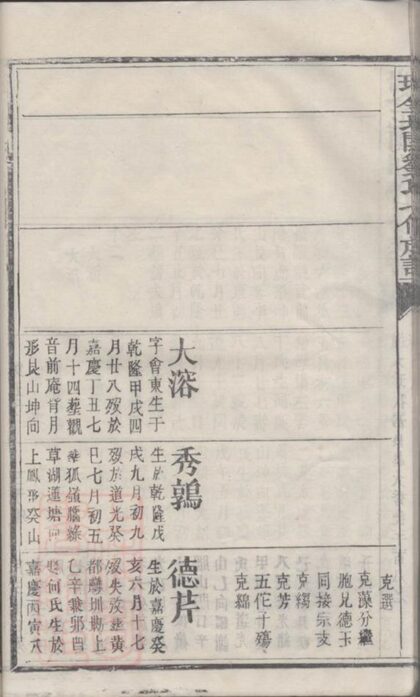 大溶
字會東生于
乾隆甲戌四
月廿八歿於
嘉慶丁丑七
月十四葬觀
音前庵肖月
形艮山坤向
秀鶉
生於乾隆戊
戌九月初九
歿於道光癸
巳七月初五
葬狐嶺腦
草湖蓮塘
上鳳形癸山
克選
克藻分繼
胞兄德玉
同接宗支
克
克芳
五佗子殤
克綿
德芹
生於嘉慶癸
亥六月十七
歿失攷葬黃
都圳墈上
乙辛兼卯酉
娶何氏生於
嘉慶丙寅八